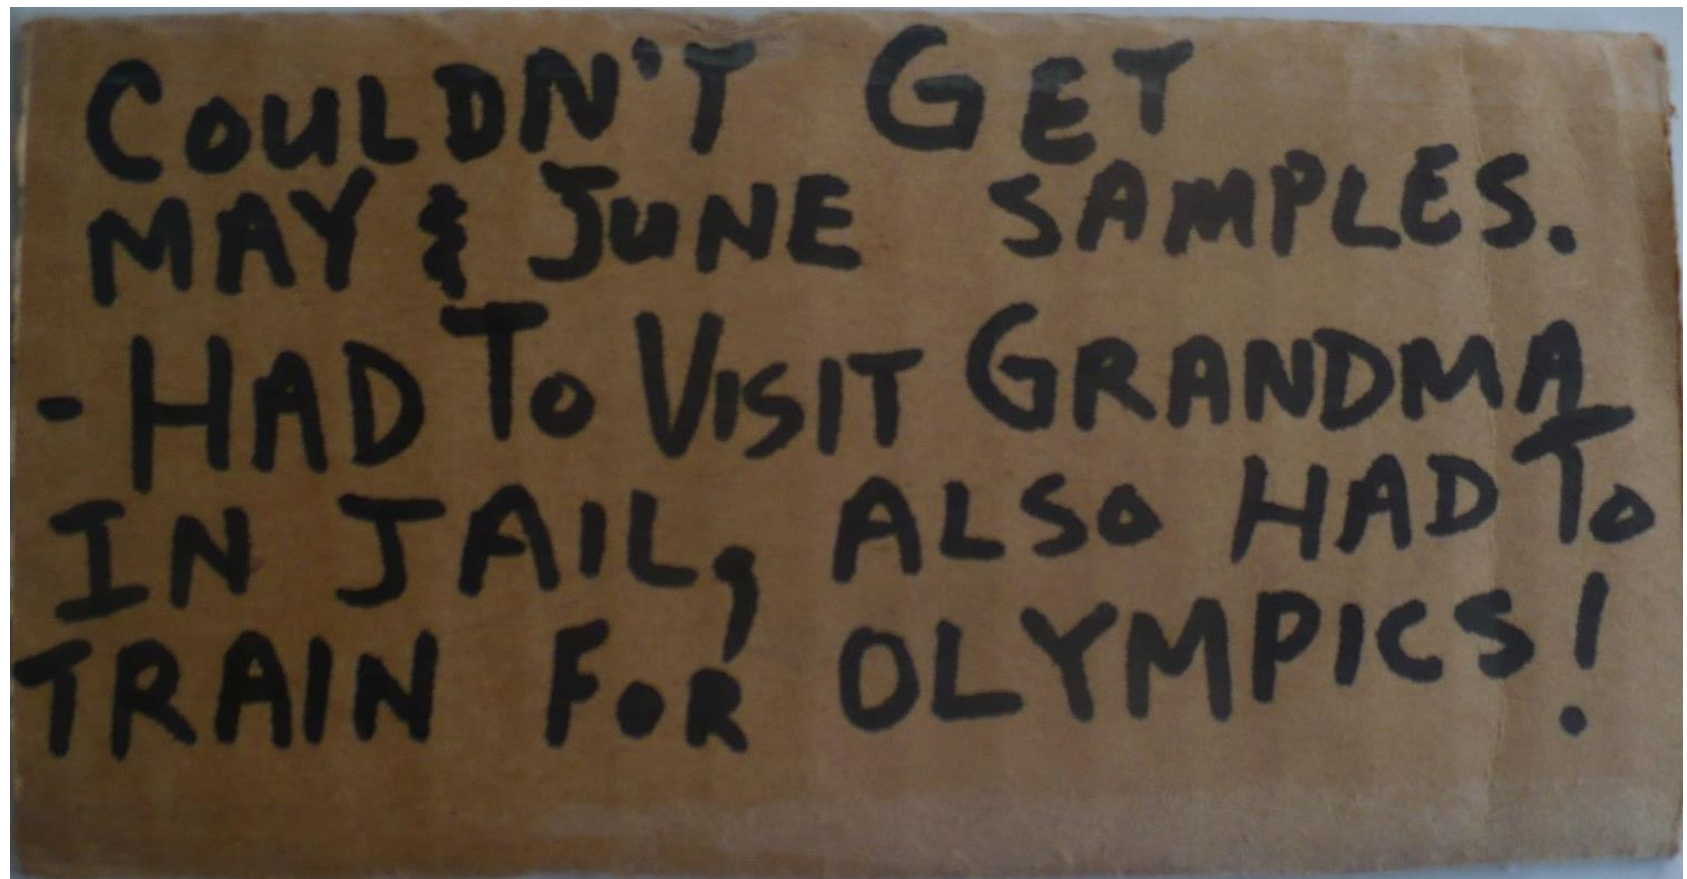 COULDN'T GET
MAY & JUNE SAMPLES.
- HAD TO VISIT GRANDMA
IN JAIL, ALSO HAD TO
TRAIN FOR OLYMPICS!